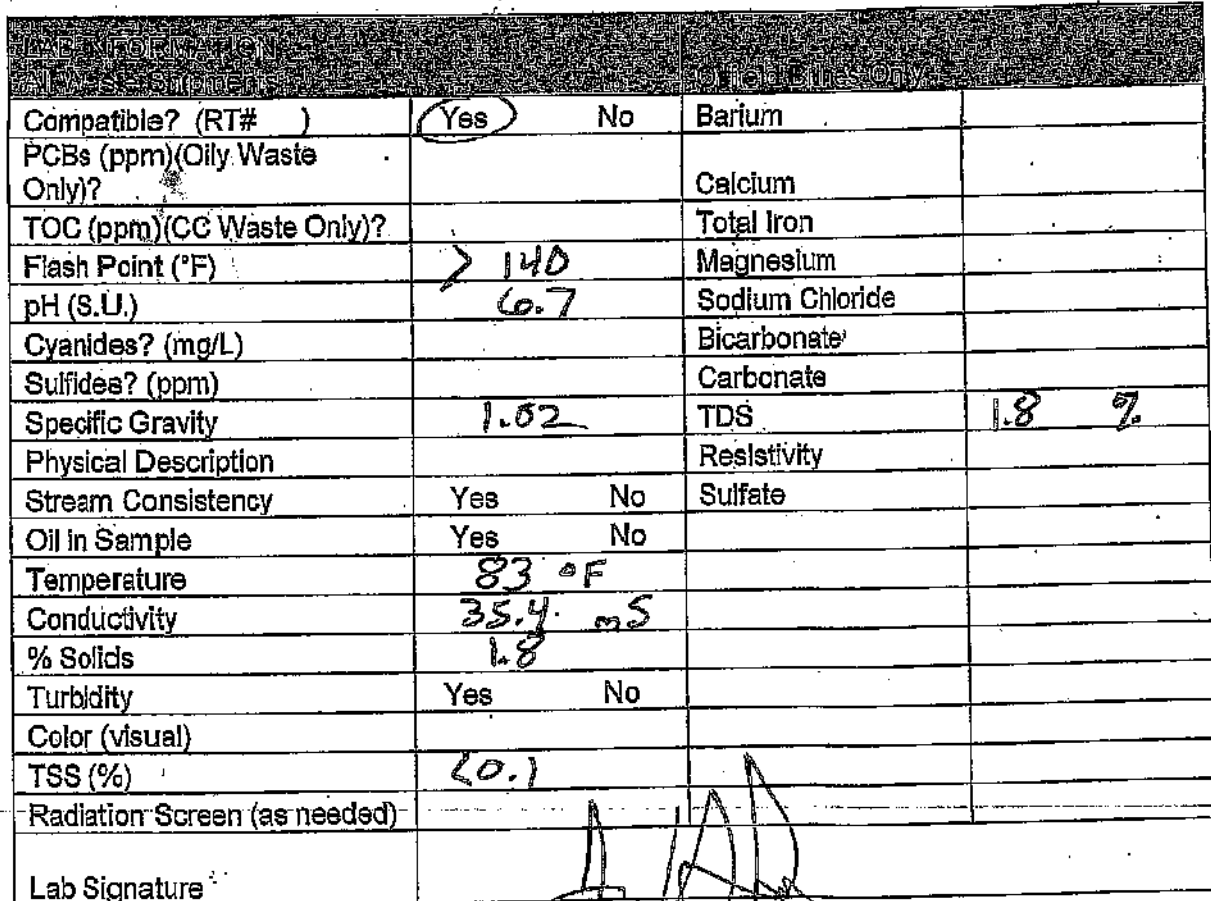 LAB INFORMATION
All Waste Shipments Oilfield Brines Only
Compatible? (RT# ) Yes No Barium
PCBs (ppm)(Oily Waste
Only)? Calcium
TOC (ppm)(CC Waste Only)? Total Iron
Flash Point (°F) > 140 Magnesium
pH (S.U.) 6.7 Sodium Chloride
Cyanides? (mg/L) Bicarbonate
Sulfides? (ppm) Carbonate
Specific Gravity 1.02 TDS 1.8 %
Physical Description Resistivity
Stream Consistency Yes No Sulfate
Oil in Sample Yes No
Temperature 83 °F
Conductivity 35.4 mS
% Solids 1.8
Turbidity Yes No
Color (visual)
TSS (%) <0.1
Radiation Screen (as needed)
Lab Signature